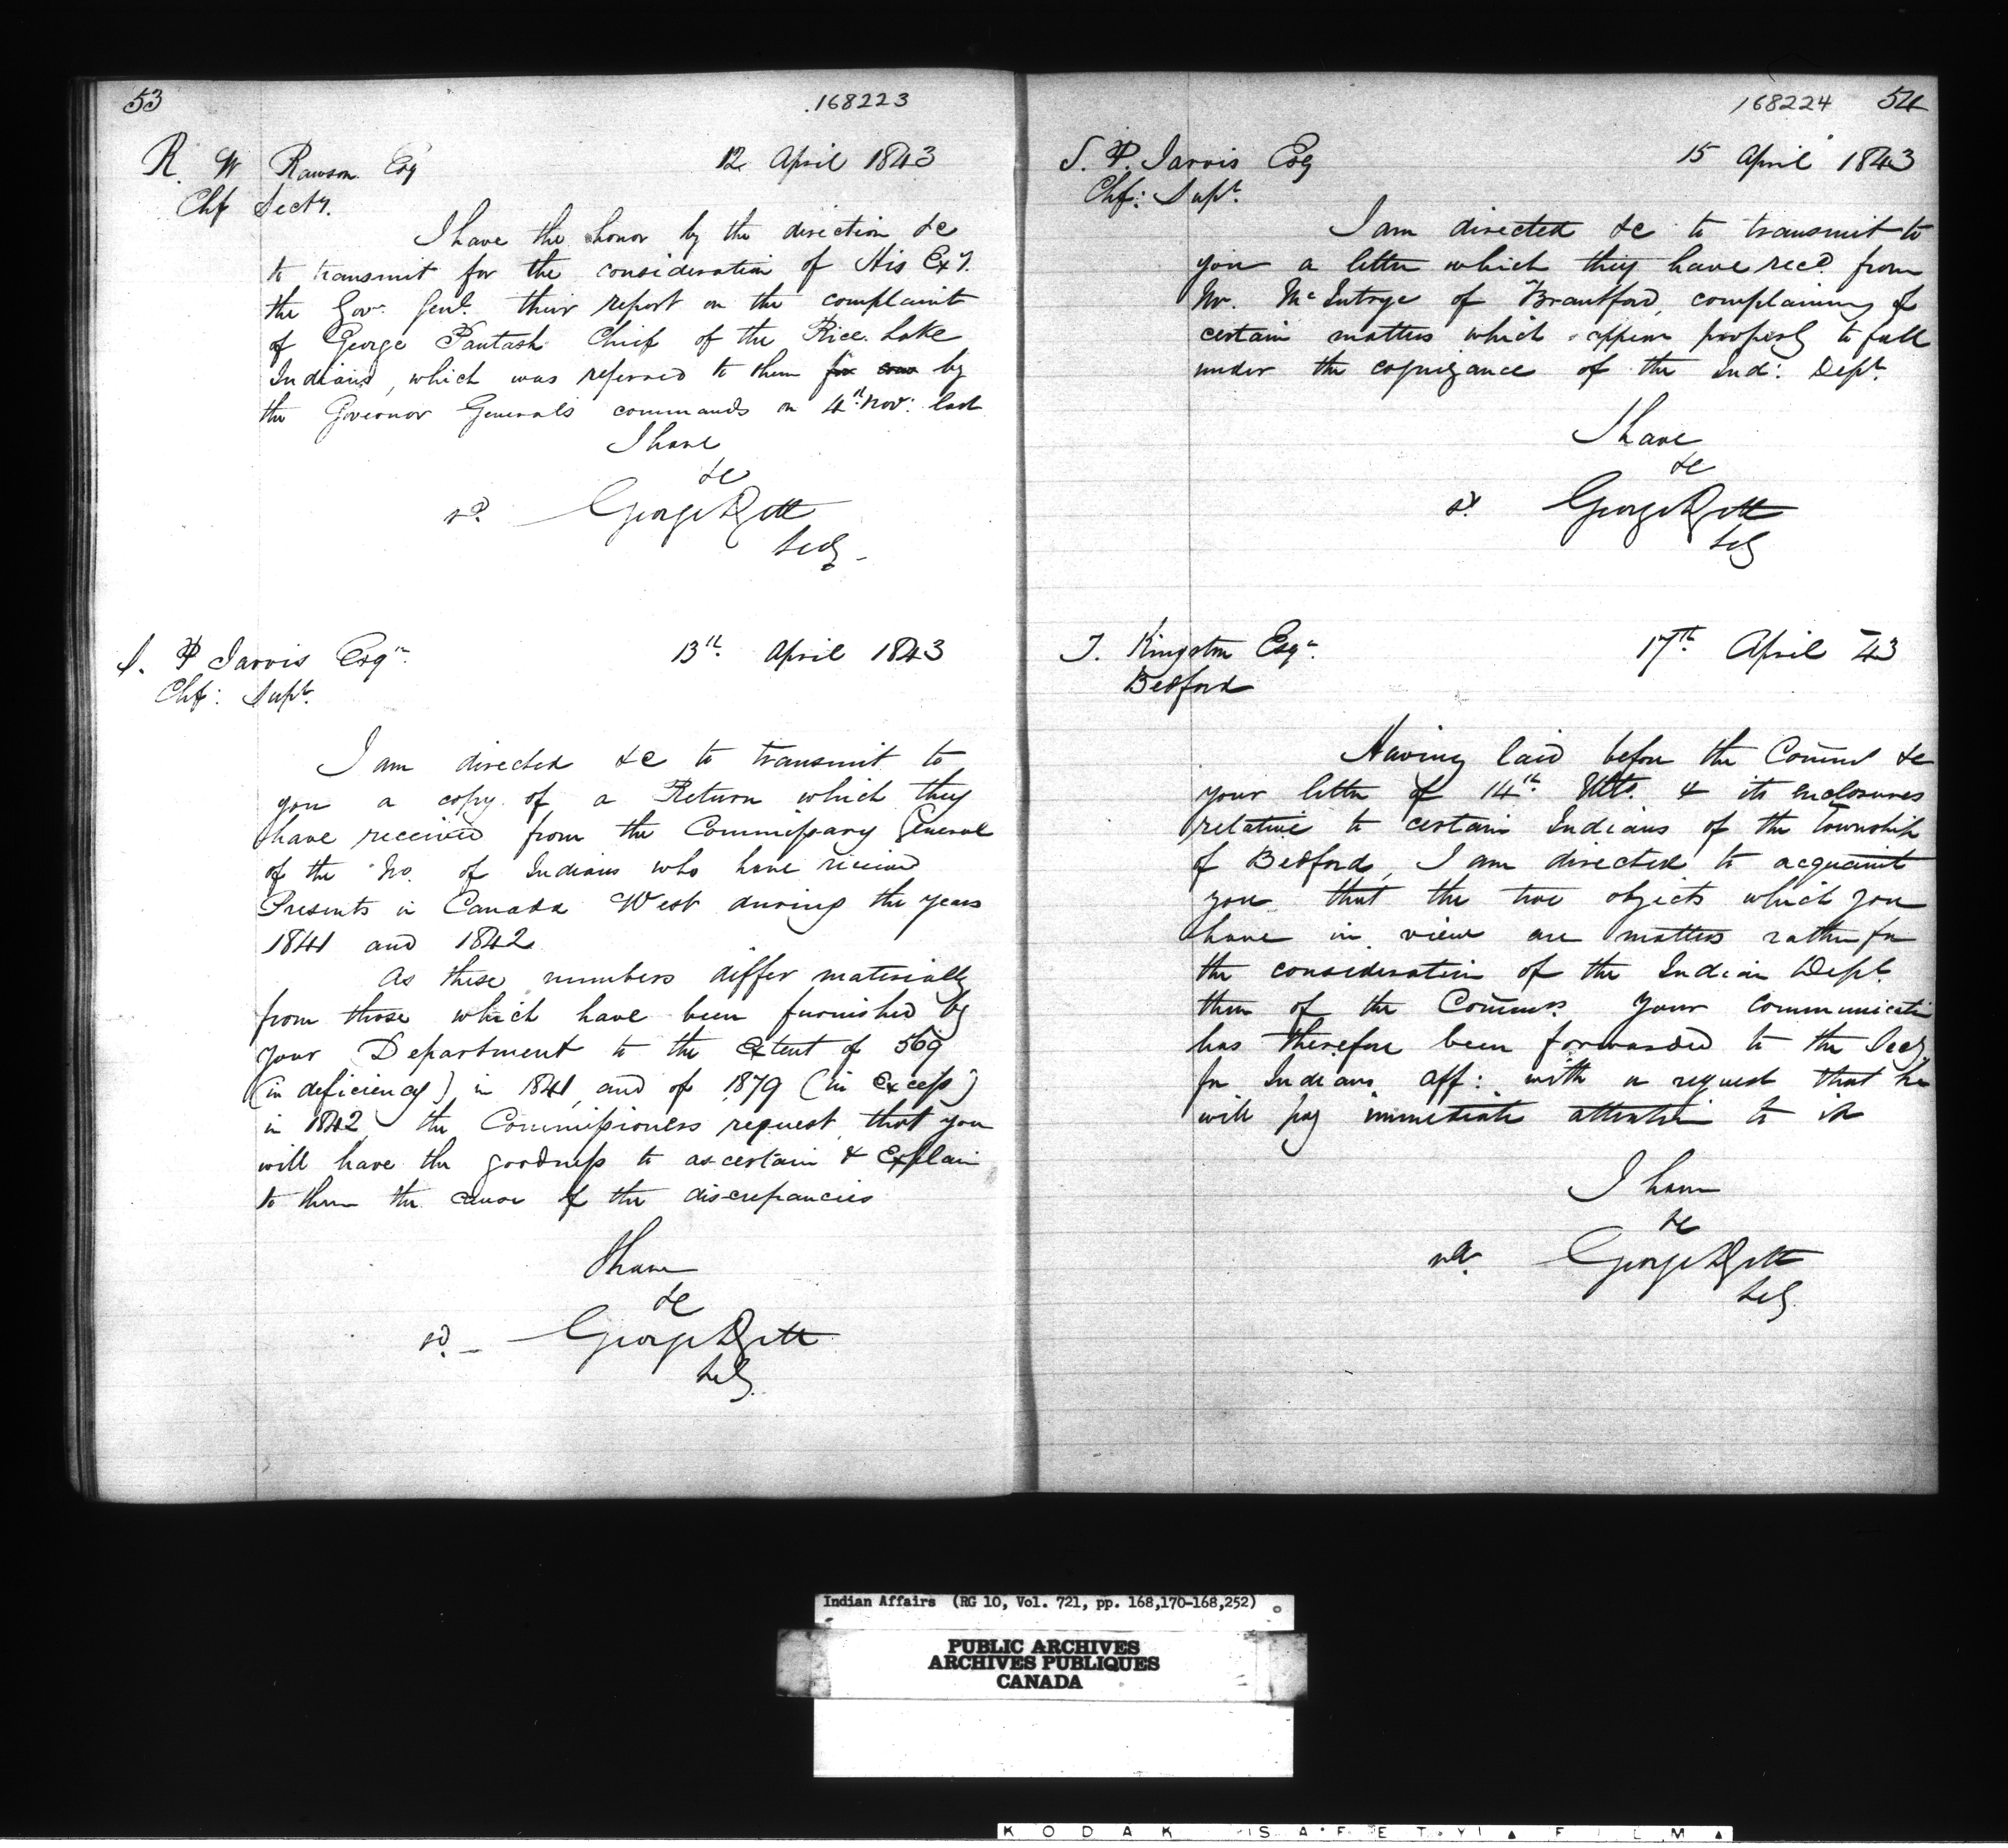 53
168223
R. W Rawson Esqr
12 April 1843
Chf Secty.
I have the honor by the direction &c
to transmit for the consideration of His Exy.
the Govr. Genl. their report on the complaint
of George Pautash Chief of the Rice Lake
Indians, which was referred to them for by
the Governor General's commands on 4th Nov: last
I have
&c
sd. George
Secy
S. P Jarvis Esqr.
13th April 1843
Chf: Supt.
I am directed &c to transmit to
you a copy of a Return which they
have received from the Commissary General
of the No. of Indians who have received
Presents in Canada West during the years
1841 and 1842
As these numbers differ materially
from those which have been furnished by
your Department to the extent of 569
(in deficiency) in 1841, and of 1879 (in excess)
in 1842, the Commissioners request that you
will have the goodness to ascertain & explain
to them the cause of the discrepancies
I have
&c
sd. George
Secy.
168224
54
S. P. Jarvis Esq
15 April 1843
Chf: Supt.
I am directed &c to transmit to
you a letter which they have recd. from
Mr. McIntyre of Brantford, complaining of
certain matters which appear properly to fall
under the cognizance of the Ind: Dept.
I have
&c
sd. George
Secy
T. Kingston Esqr.
17th. April 43
Bedford
Having laid before the Commrs &c
your letter of 14th Ulto. & its enclosures
relative to certain Indians of the township
of Bedford, I am directed to acquaint
you that the two objects which you
have in view are matters rather for
the consideration of the Indian Dept.
than of the Commrs. Your communicatn
has therefore been forwarded to the Secy.
for Indians Aff: with a request that he
will pay immediate attention to it
I have
&c
sd. George
Secy.
Indian Affairs (RG 10, Vol. 721, pp. 168,170-168,252)
PUBLIC ARCHIVES
ARCHIVES PUBLIQUES
CANADA
KODAK SAFETY FILM